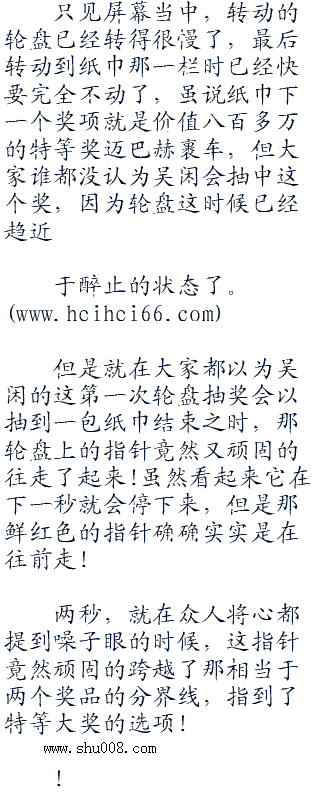 只见屏幕当中，转动的
轮盘已经转得很慢了，最后
转动到纸巾那一栏时已经快
要完全不动了，虽说纸巾下
一个奖项就是价值八百多万
的特等奖迈巴赫裹车，但大
家谁都没认为吴闲会抽中这
个奖，因为轮盘这时候已经
趋近
于醉止的状态了。
(www.hcihci66.com)
但是就在大家都以为吴
闲的这第一次轮盘抽奖会以
抽到一包纸巾结束之时，那
轮盘上的指针竟然又顽固的
往走了起来!虽然看起来它在
下一秒就会停下来，但是那
鲜红色的指针确确实实是在
往前走!
两秒，就在众人将心都
提到嗓子眼的时候，这指针
竟然顽固的跨越了那相当于
两个奖品的分界线，指到了
特等大奖的选项!
www.shu008.com
!